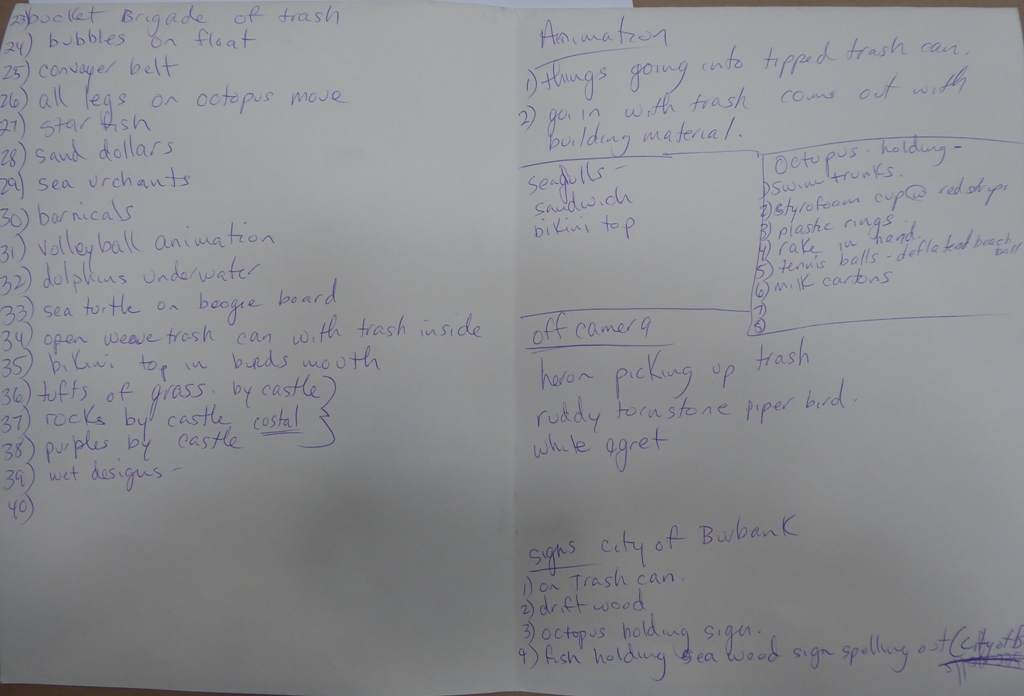 23) bucket Brigade of trash
24) bubbles on float
25) convayer belt
26) all legs on octopus move
27) star fish
28) sand dollars
29) sea urchants
30) barnicals
31) volleyball animation
32) dolphins underwater
33) sea turtle on boogie board
34) open weave trash can with trash inside
35) bikini top in birds mouth
36) tufts of grass. by castle
37) rocks by castle costal
38) purples by castle
39) wet designs -
40)
Animation
1) things going into tipped trash can.
2) go in with trash come out with
building material.
seagulls -
sandwich
bikini top
Octopus - holding -
1) swim trunks.
2) styrofoam cup red strips
3) plastic rings
4) rake in hand.
5) tennis balls - deflated beach
ball
6) milk cartons
7)
8)
off camera
heron picking up trash
ruddy tornstone piper bird.
white egret
signs City of Burbank
1) on Trash can.
2) drift wood
3) octopus holding sign.
4) fish holding sea wood sign spelling out (City of B